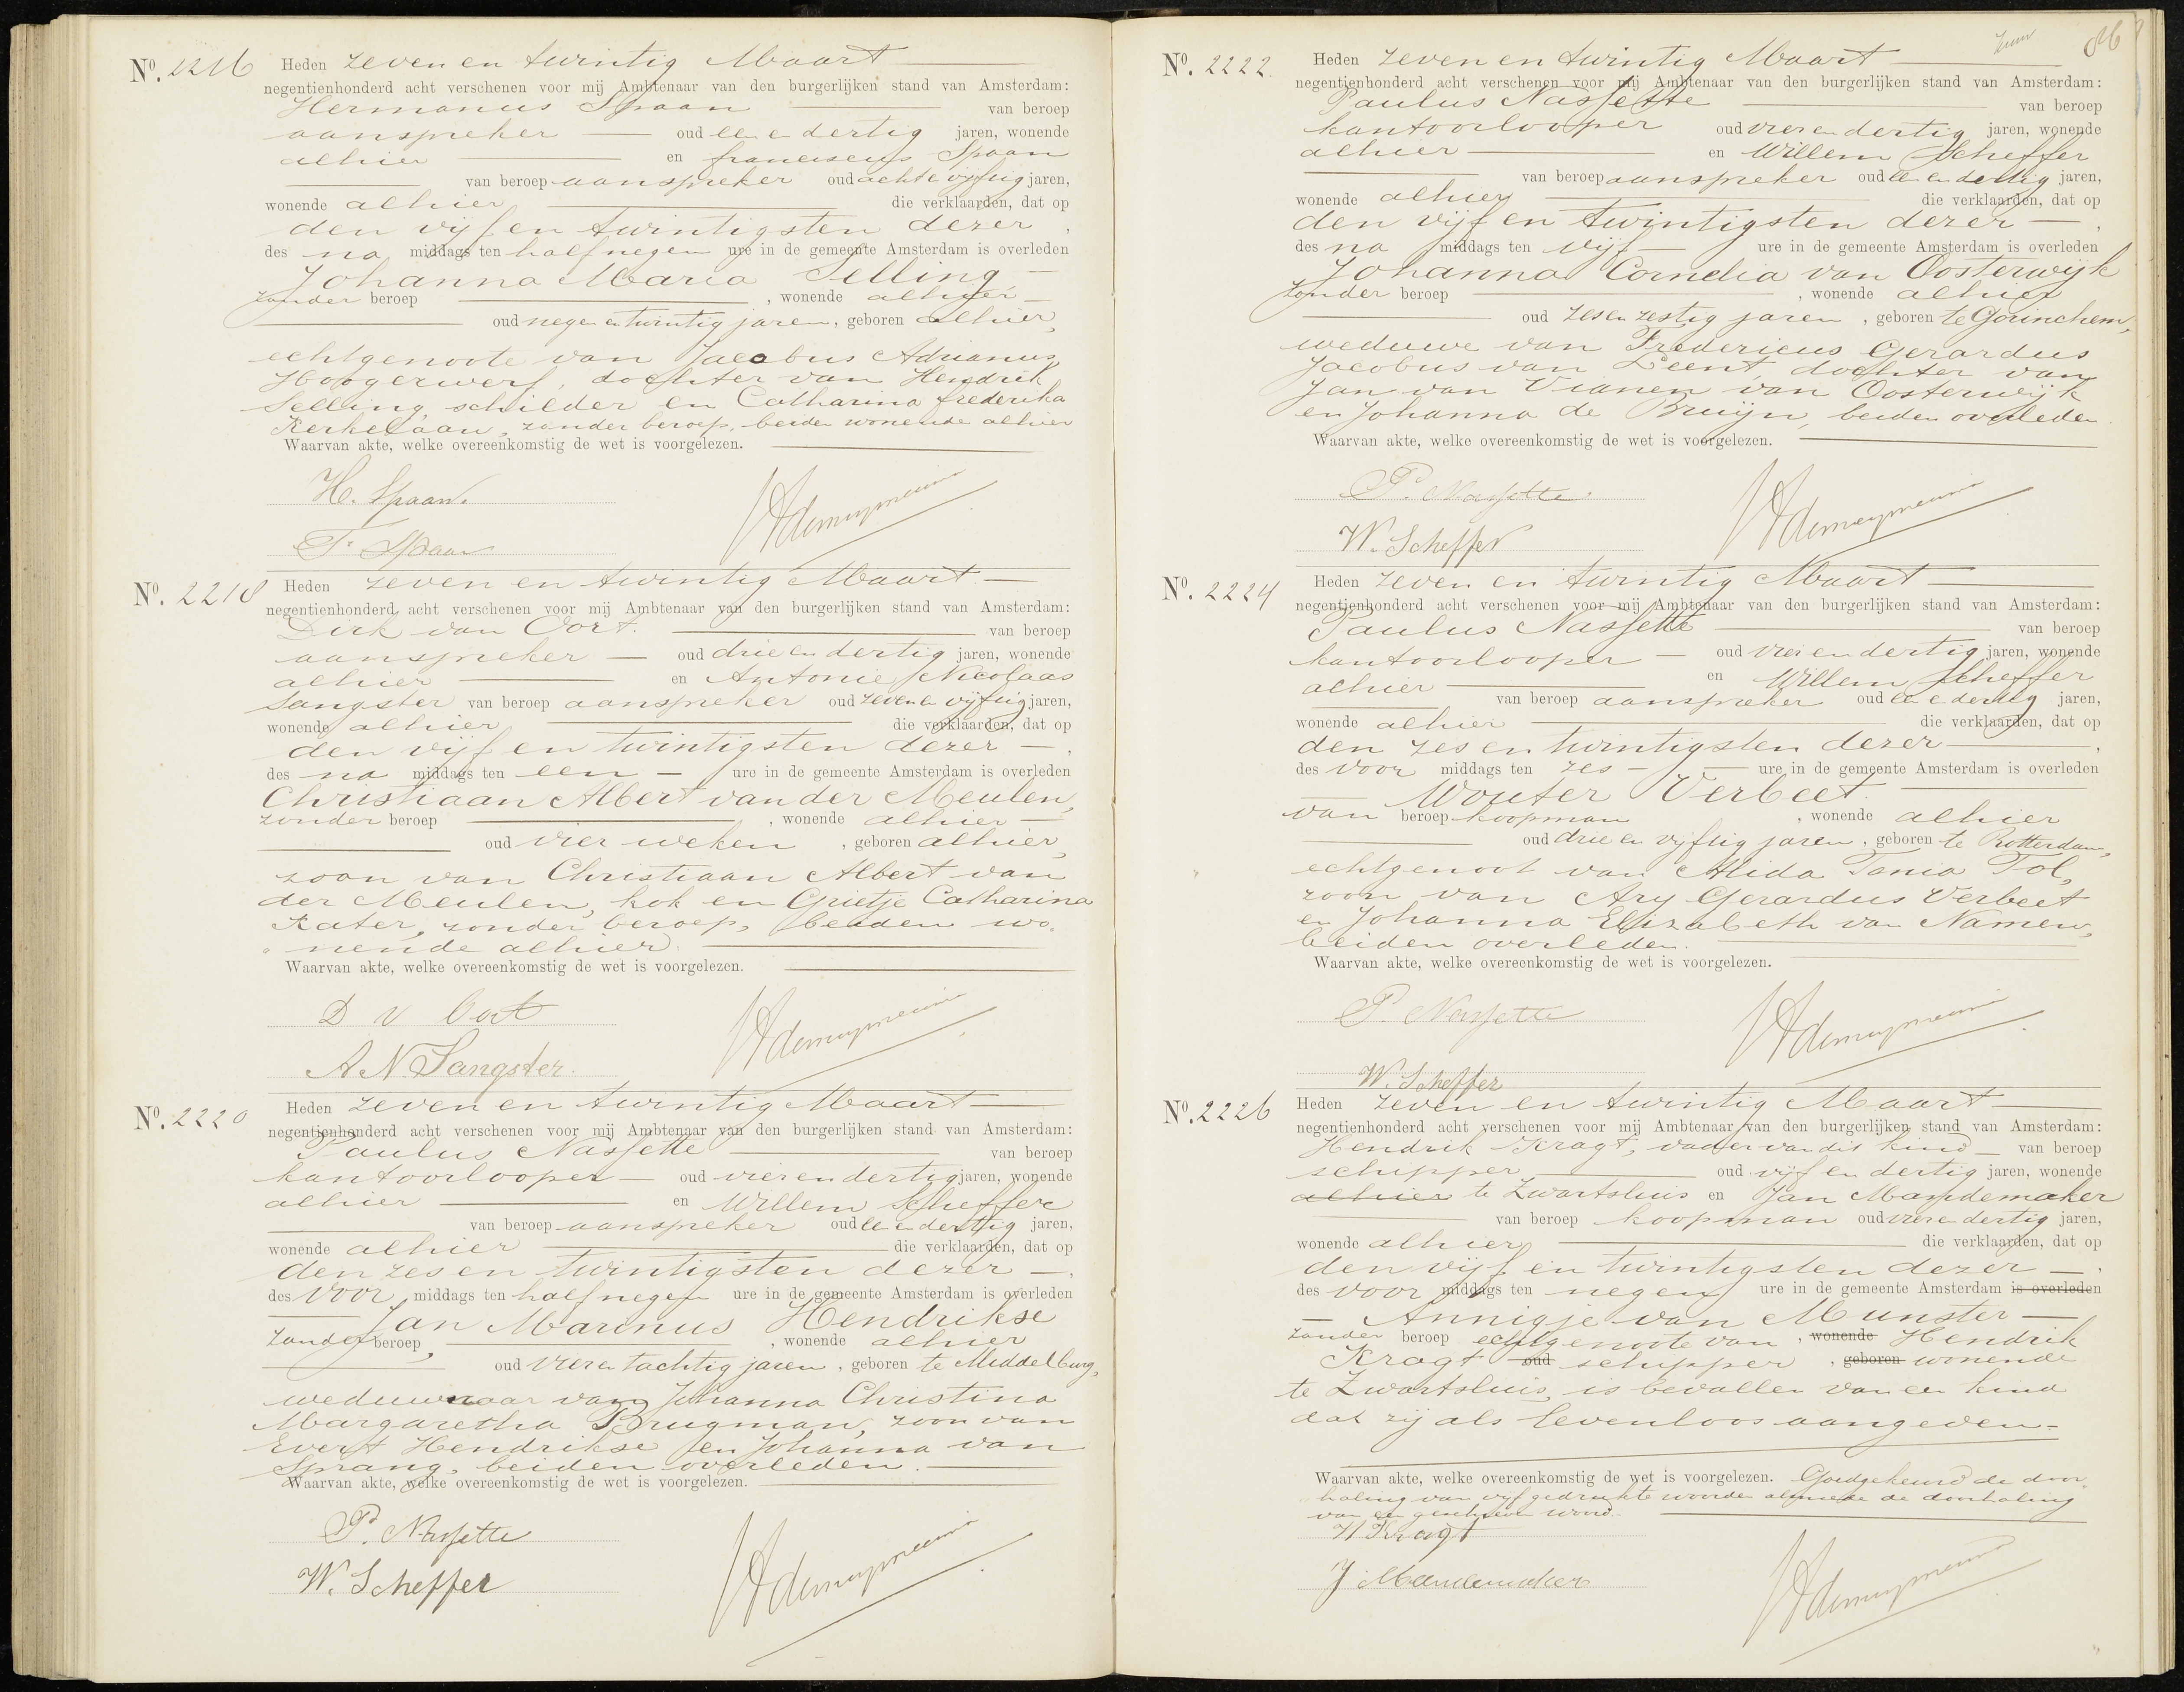 Nº. 2216 Heden zeven en twintig Maart
negentienhonderd acht verschenen voor mij Ambtenaar van den burgerlijken stand van Amsterdam:
Hermanus Spaan van beroep
aanspreker oud een en dertig jaren, wonende
alhier en franciscus Spaan
van beroep aanspreker oud acht e vijftig jaren,
wonende alhier die verklaarden, dat op
den vijf en twintigsten dezer,
des na middags ten half negen ure in de gemeente Amsterdam is overleden
Johanna Maria Selling
zonder beroep , wonende alhier
oud negen en twintig jaren, geboren alhier,
echtgenoote van Jacobus Adrianus
Hoogerwerf, dochter van Hendrik
Selling, schilder en Catharina frederika
Kerkelaan, zonder beroep, beiden wonende alhier
Waarvan akte, welke overeenkomstig de wet is voorgelezen.
H. Spaan.
F. Spaan
Nº. 2218 Heden zeven en twintig Maart
negentienhonderd acht verschenen voor mij Ambtenaar van den burgerlijken stand van Amsterdam:
Dirk van Oort. van beroep
aanspreker oud drie en dertig jaren, wonende
alhier en Antonie Nicolaas
Sangster van beroep aanspreker oud zeven en vijftig jaren,
wonende alhier die verklaarden, dat op
den vijf en twintigsten dezer,
des na middags ten een ure in de gemeente Amsterdam is overleden
Christiaan Albert van der Meulen,
zonder beroep , wonende alhier
oud vier weken , geboren alhier,
zoon van Christiaan Albert van
der Meulen, kok en Grietje Catharina
Kater, zonder beroep, beiden wo-
nende alhier.
Waarvan akte, welke overeenkomstig de wet is voorgelezen.
D v Oort
A N Sangster.
Nº. 2220 Heden zeven en twintig Maart
negentienhonderd acht verschenen voor mij Ambtenaar van den burgerlijken stand van Amsterdam:
Paulus Nassette van beroep
kantoorlooper oud vier en dertig jaren, wonende
alhier en Willem Scheffer
van beroep aanspreker oud een en dertig jaren,
wonende alhier die verklaarden, dat op
den zes en twintigsten dezer,
des voor middags ten half negen ure in de gemeente Amsterdam is overleden
Jan Marinus Hendrikse
zonder beroep, , wonende alhier
oud vier en tachtig jaren, geboren te Middelburg,
weduwnaar van Johanna Christina
Margaretha Brugman, zoon van
Evert Hendrikse en Johanna van
Sprang, beiden overleden.
Waarvan akte, welke overeenkomstig de wet is voorgelezen.
P. Nassette
W. Scheffer
Nº. 2222. Heden zeven en twintig Maart
negentienhonderd acht verschenen voor mij Ambtenaar van den burgerlijken stand van Amsterdam:
Paulus Nassette van beroep
kantoorlooper oud vier en dertig jaren, wonende
alhier en Willem Scheffer
van beroep aanspreker oud een en dertig jaren,
wonende alhier die verklaarden, dat op
den vijf en twintigsten dezer,
des na middags ten vijf ure in de gemeente Amsterdam is overleden
Johanna Cornelia van Oosterwijk
zonder beroep , wonende alhier
oud zes en zestig jaren , geboren te Gorinchem,
weduwe van Fredericus Gerardus
Jacobus van Leent, dochter van
Jan van Vianen van Oosterwijk
en Johanna de Bruijn, beiden overleden.
Waarvan akte, welke overeenkomstig de wet is voorgelezen.
P. Nassette.
W. Scheffer
Nº. 2224 Heden zeven en twintig Maart
negentienhonderd acht verschenen voor mij Ambtenaar van den burgerlijken stand van Amsterdam:
Paulus Nassette van beroep
kantoorlooper oud vier en dertig jaren, wonende
alhier en Willem Scheffer
van beroep aanspreker oud een e dertig jaren,
wonende alhier die verklaarden, dat op
den zes en twintigsten dezer,
des voor middags ten zes ure in de gemeente Amsterdam is overleden
Wouter Verbeet
van beroep koopman , wonende alhier
oud drie en vijftig jaren, geboren te Rotterdam,
echtgenoot van Alida Tania Tol,
zoon van Ary Gerardus Verbeet
en Johanna Elizabeth van Namen,
beiden overleden.
Waarvan akte, welke overeenkomstig de wet is voorgelezen.
P. Nassette
W. Scheffer
Nº. 2226 Heden zeven en twintig Maart
negentienhonderd acht verschenen voor mij Ambtenaar van den burgerlijken stand van Amsterdam:
Hendrik Kragt, vader van dit kind van beroep
schipper oud vijf en dertig jaren, wonende
alhier te Zwartsluis en Jan Mandemaker
van beroep koopman oud vier en dertig jaren,
wonende alhier die verklaarden, dat op
den vijf en twintigsten dezer,
des voor middags ten negen ure in de gemeente Amsterdam is overleden
Annigje van Munster
zonder beroep echtgenoote van , wonende Hendrik
Kragt oud schipper , geboren wonende
te Zwartsluis, is bevallen van een kind
dat zij als levenloos aangeven.
Waarvan akte, welke overeenkomstig de wet is voorgelezen. Goedgekeurd de door
haling van vijf gedrukte woorden alsmede de doorhaling
van een geschreven woord.
H Kragt
J Mandemaker